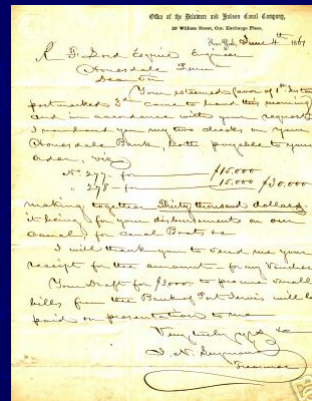 Office of the Delaware and Hudson Canal Company,
29 William Street, Cor. Exchange Place,
New York, June 4th 1861
R. F. Lord Esquire Engineer
Honesdale Penn
Dear Sir
Your esteemed favor of 1st Inst
postmarked 3d come to hand this morning
and in accordance with your request
I now hand you my two checks on your
Honesdale Bank, both payable to your
order, viz
No 277 - for $15,000
" 278 - for 15,000 $30,000
making together Thirty thousand dollars,
it being for your disbursement on our
Canal, for Canal Boats &c
I will thank you to send me your
receipt for the amount - for my Voucher
Your Draft for $3000 to procure small
bills from the Bank of Port Jervis will be
paid on presentation to me
Very truly yrs &c
I. N. Seymour
Treasurer